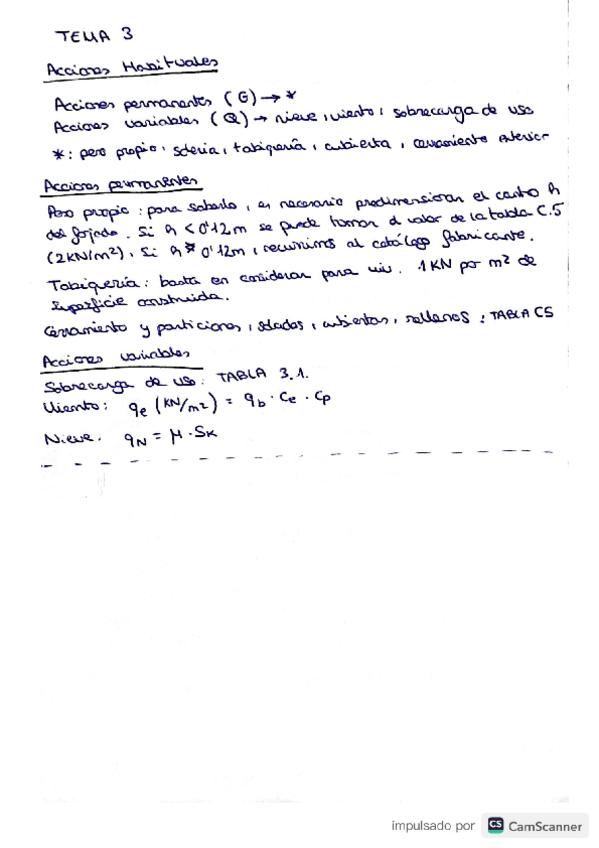 TEMA 3
Acciones Habituales
Acciones permanentes (G) → *
Acciones variables (Q) → nieve, viento, sobrecarga de uso
*: peso propio, solería, tabiquería, cubierta, cerramiento exterior
Acciones permanentes
Peso propio: para saberlo, es necesario predimensionar el canto h
del forjado. Si h < 0'12m se puede tomar el valor de la tabla C.5
(2KN/m²), Si h > 0'12m, recurrimos al catálogo fabricante.
Tabiquería: basta en considerar para viv. 1KN por m² de
superficie construida.
Cerramiento y particiones, solados, cubiertas, rellenos: TABLA C5
Acciones variables
Sobrecarga de uso: TABLA 3.1.
Viento: qe (KN/m²) = qb · Ce · Cp
Nieve: qN = μ · SK
impulsado por CS CamScanner